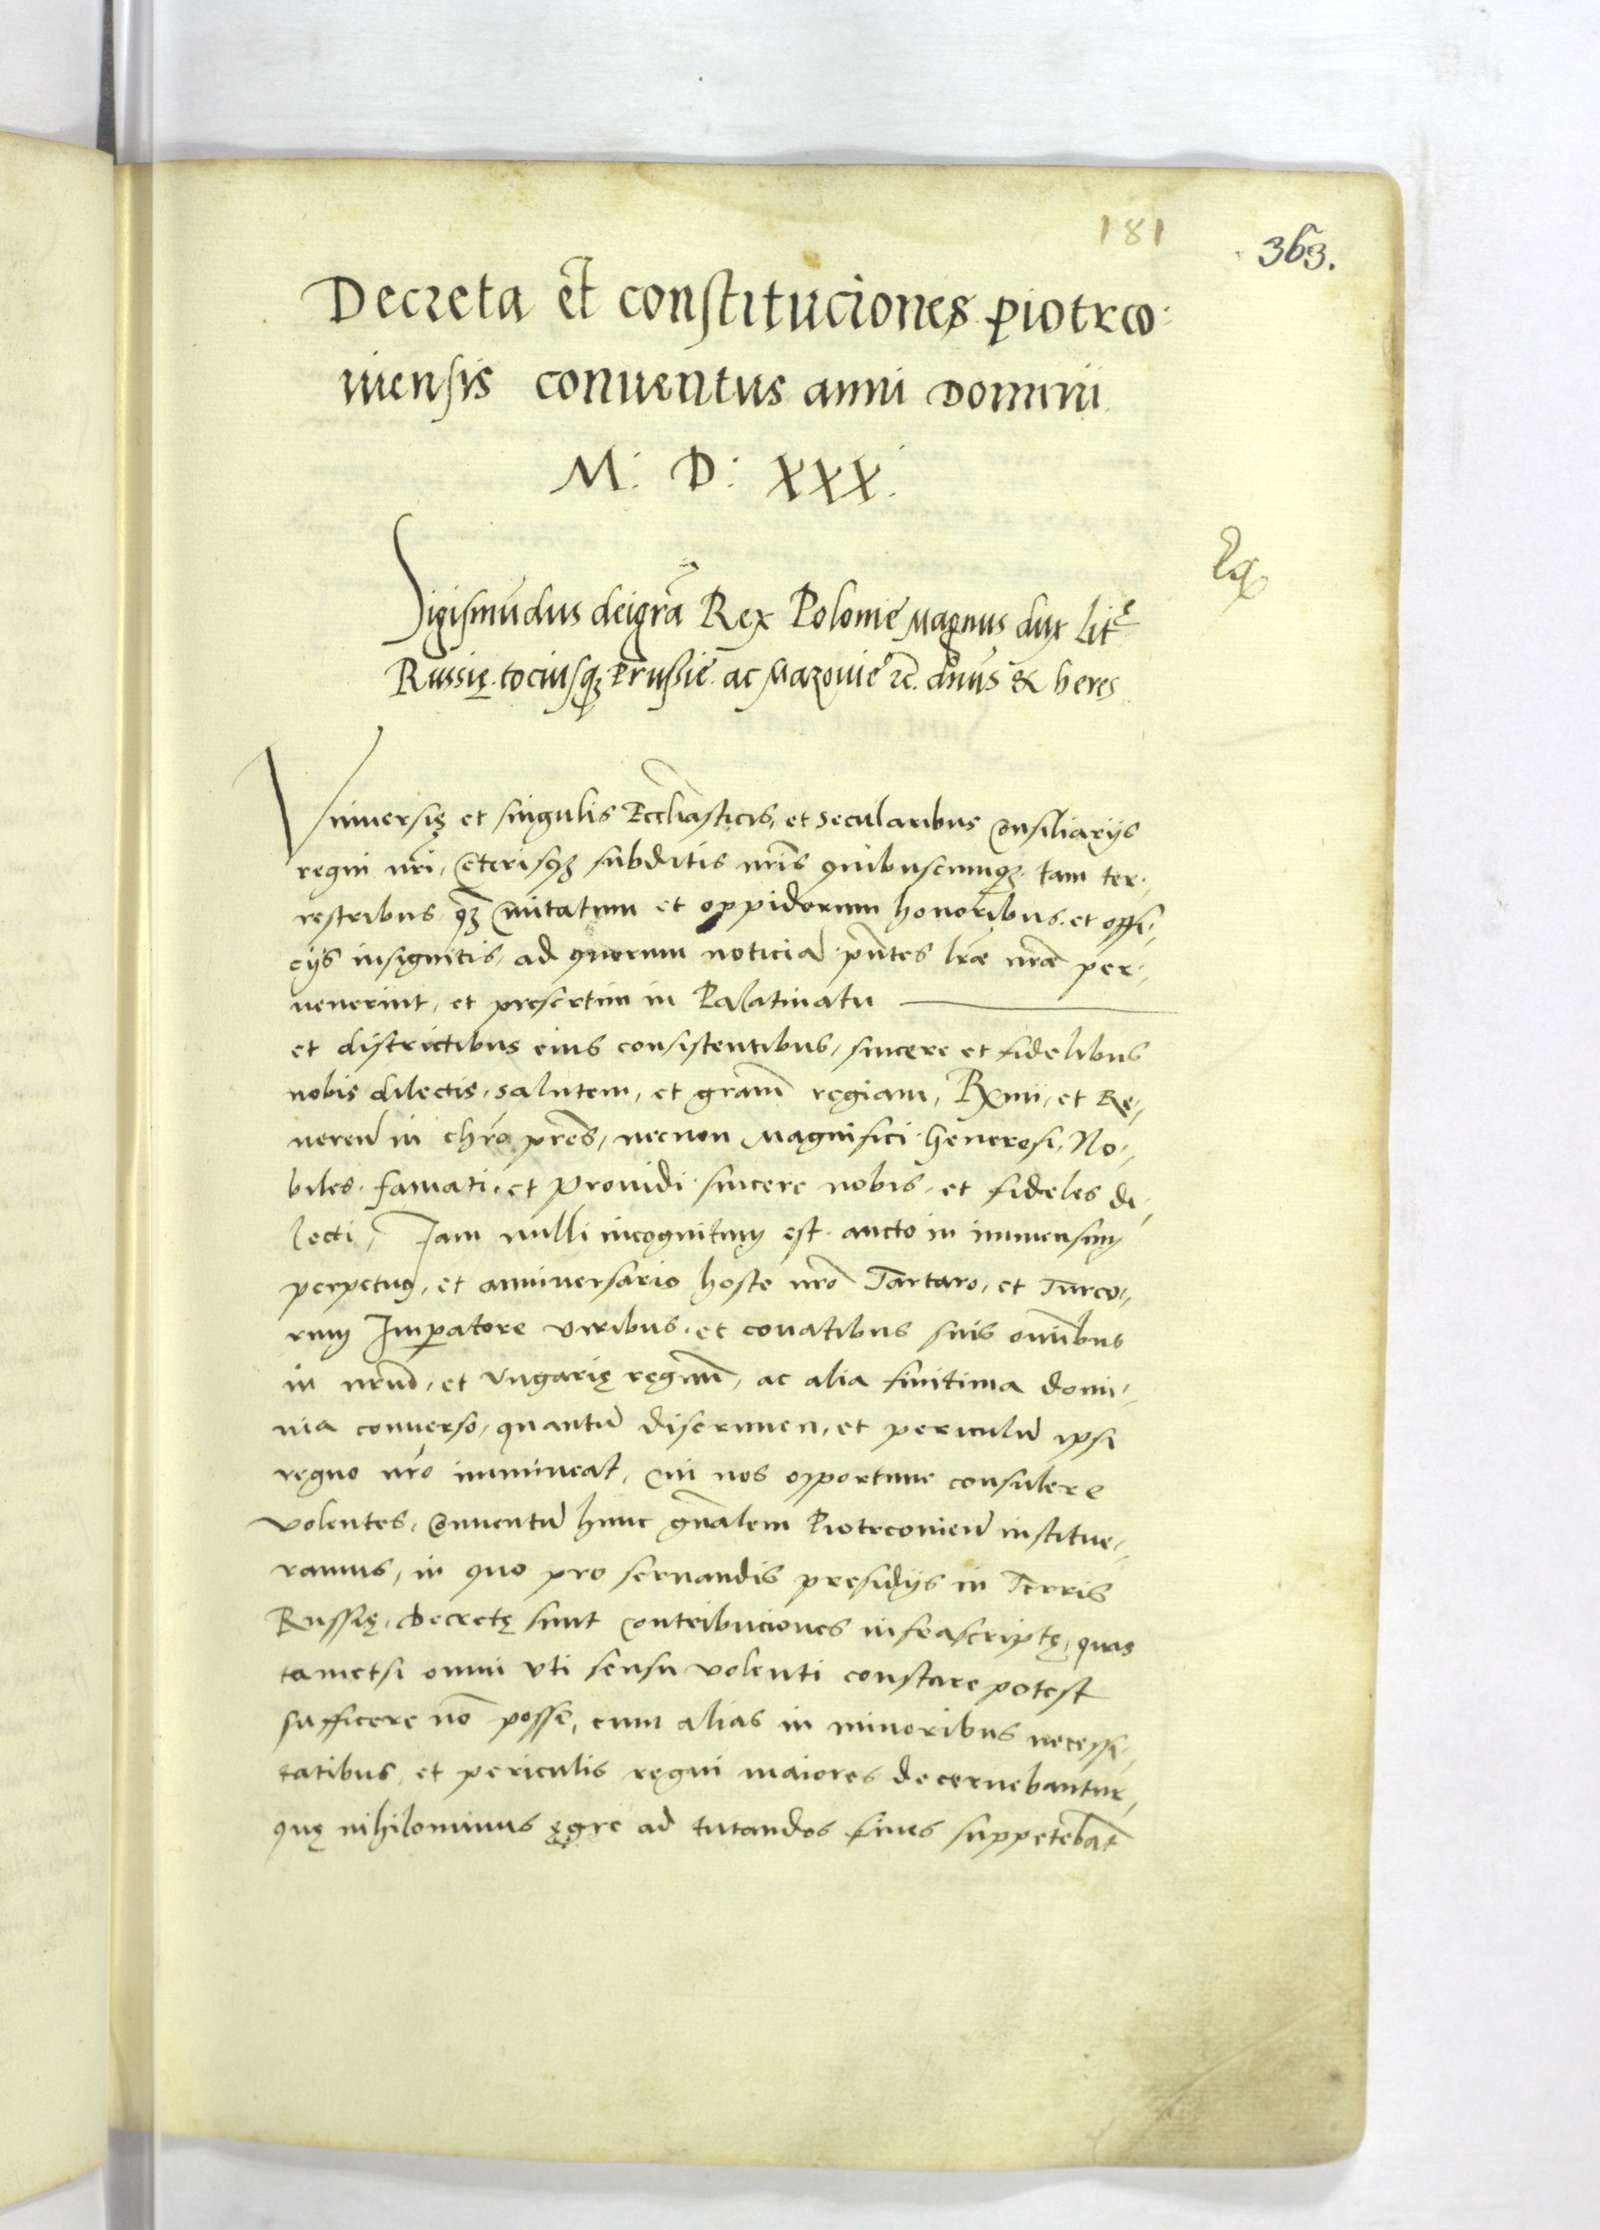 181
363.
Decreta et constituciones piotrco:
niensis conuentus anni Domini
M: D: XXX.
Sigismūdus deigrā Rex Polonie Magnus dux Litᵉ
Russię tociusqꝫ Prussie ac Mazouie ꝛc. dn̄us & heres
Vniuersis et singulis Eccl̄iasticis, et Secularibus Consiliarijs
regni nr̄i, Ceterisqꝫ subditis nr̄is quibuscunqꝫ tam ter-
restribus qꝫ Ciuitatum et oppidorum honoribus et offi-
cijs insignitis, ad quorum noticiā pn̄tes lr̄æ nr̄æ per-
uenerint, et presertim in Palatinatu
et districtibus eius consistentibus, sincere et fidelibus
nobis dilectis, salutem, et gram̄ regiam, Rx̄mi, et Re-
uereñ in chr̄o pr̄es, necnon Magnifici Generosi, No-
biles, famati, et Prouidi sincere nobis, et fideles di-
lecti, Iam nulli incognitum est aucto in immensum
perpetuo, et anniuersario hoste nr̄o Tartaro, et Turco-
rum Imp̱atore viribus, et conatibus suis omībus
in nr̄um, et Vngarię regnum̄, ac alia finitima domi-
nia conuerso, quantū discrimen, et periculū ipsi
regno nr̄o immineat, Cui nos opportune consulere
volentes, Conuentū hunc gn̄alem Piotrconieñ institue-
ramus, in quo pro seruandis presidijs in Terris
Russię, decretę sunt Contribuciones infrascriptę, quas
tametsi omni vti sensu volenti constare potest
sufficere nō posse, cum alias in minoribus necessi-
tatibus, et periculis regni maiores decernebantur,
quę nihilominus ęgre ad tutandos fines suppetebāt